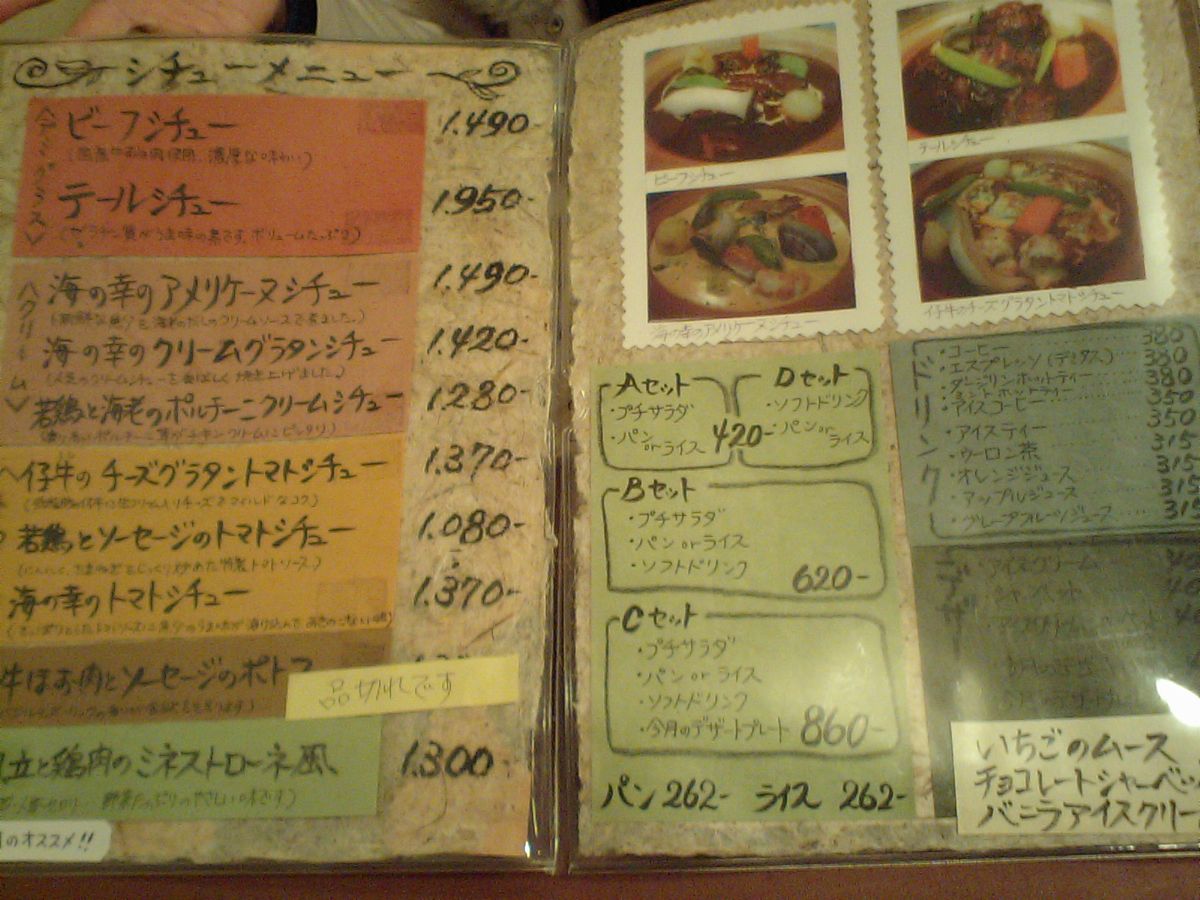 シチューメニュー
ビーフシチュー 1.490-
テールシチュー 1.950-
海の幸のアメリケーヌシチュー 1.490-
海の幸のクリームグラタンシチュー 1.420-
(人気のクリームシチューを香ばしく焼き上げました)
若鶏と海老のポルチーニクリームシチュー 1.280-
仔牛のチーズグラタントマトシチュー 1.370-
若鶏とソーセージのトマトシチュー 1.080-
(にんにく、たまねぎをじっくり炒めた特製トマトソース)
海の幸のトマトシチュー 1.370-
牛ほお肉とソーセージのポトフ
品切れです
と鶏肉のミネストローネ風 1.300-
のオススメ!!
ビーフシチュー
テールシチュー
海の幸のアメリケーヌシチュー
仔牛のチーズグラタントマトシチュー
Aセット
・プチサラダ
・パン or ライス
420-
Dセット
・ソフトドリンク
・パン or ライス
Bセット
・プチサラダ
・パン or ライス
・ソフトドリンク
620-
Cセット
・プチサラダ
・パン or ライス
・ソフトドリンク
・今月のデザートプレート 860-
パン 262- ライス 262-
ドリンク
・コーヒー 380
・エスプレッソ(デミタス) 380
・ダージリンホットティー 380
・ミントホットティー 350
・アイスコーヒー 350
・アイスティー 315
・ウーロン茶 315
・オレンジジュース 315
・アップルジュース 315
・グレープフルーツジュース
デザ
・アイスクリーム
いちごのムース
チョコレートシャーベッ
バニラアイスクリー